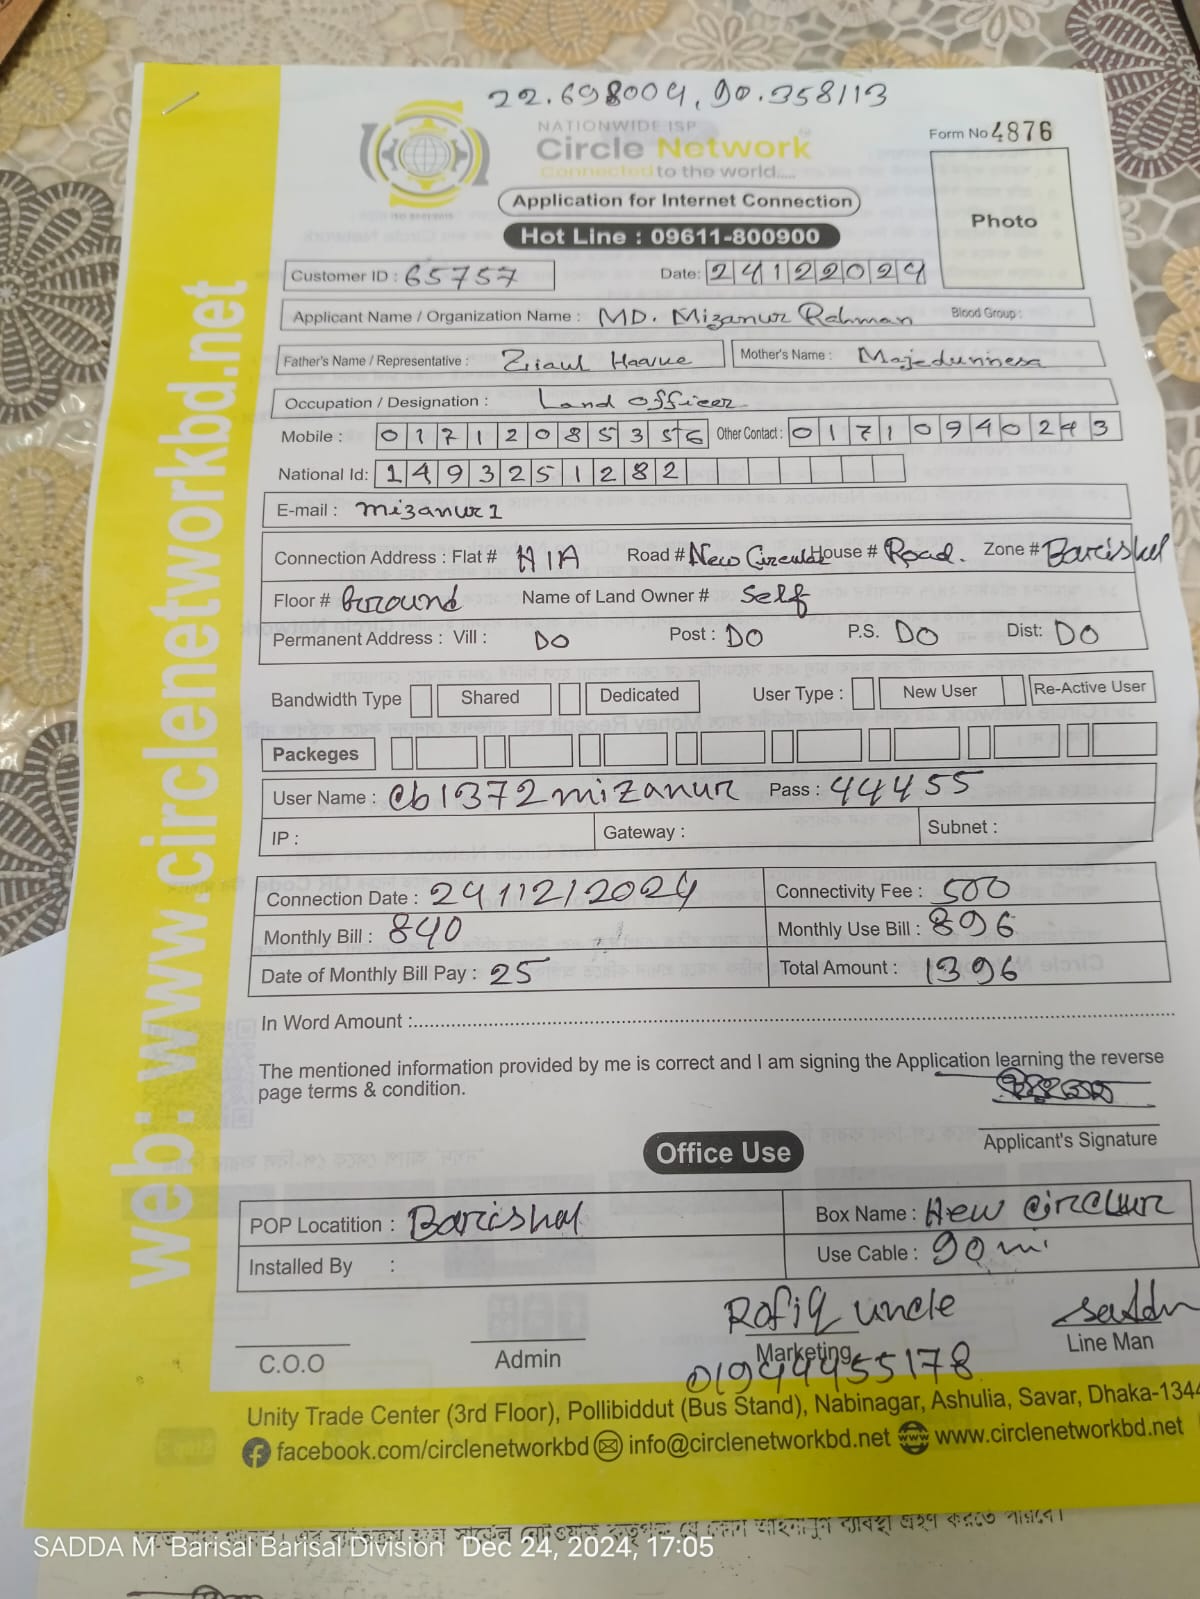 22.698004, 90.358113
NATIONWIDE ISP
Circle Network
Connected to the world.....
Form No 4876
Application for Internet Connection
Photo
Hot Line : 09611-800900
Customer ID : 65757 Date: 24122024
Applicant Name / Organization Name : MD. Mizanur Rahman Blood Group :
Father's Name / Representative : Ziaul Haque Mother's Name : Majedunnesa
Occupation / Designation : Land officer
Mobile : 01712085356 Other Contact : 01710940243
National Id: 1493251282
E-mail : mizanur1
Connection Address : Flat # HIA Road # New Circular House # Road. Zone # Barishal
Floor # Ground Name of Land Owner # Self
Permanent Address : Vill : DO Post : DO P.S. DO Dist: DO
Bandwidth Type Shared Dedicated User Type : New User Re-Active User
Packeges
User Name : cb1372mizanur Pass : 44455
IP : Gateway : Subnet :
Connection Date : 24/12/2024 Connectivity Fee : 500
Monthly Bill : 840 Monthly Use Bill : 896
Date of Monthly Bill Pay : 25 Total Amount : 1396
In Word Amount :
The mentioned information provided by me is correct and I am signing the Application learning the reverse
page terms & condition.
Applicant's Signature
Office Use
POP Locatition : Barishal Box Name : New Circular
Installed By : Use Cable : 90 m
Rafiq uncle Saddam
C.O.O Admin Marketing Line Man
01944455178
Unity Trade Center (3rd Floor), Pollibiddut (Bus Stand), Nabinagar, Ashulia, Savar, Dhaka-1344
facebook.com/circlenetworkbd info@circlenetworkbd.net www.circlenetworkbd.net
web: www.circlenetworkbd.net
SADDA M Barisal Barisal Division Dec 24, 2024, 17:05